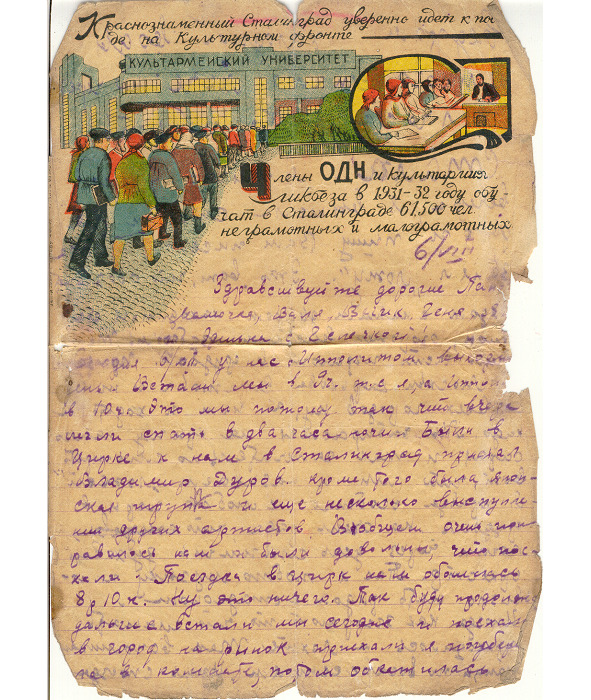 Краснознаменный Сталинград уверенно идет к по
беде на Культурном фронте
КУЛЬТАРМЕЙСКИЙ УНИВЕРСИТЕТ
Члены ОДН и культармия
ликбеза в 1931-32 году обу-
чат в Сталинграде 61.500 чел.
неграмотных и малограмотных
6/VIII
Здравствуйте дорогие
Мамочка, Валя,
Встали мы в 9 ч.
в 10 ч. Это мы потому так что вчера
спать в два часа ночи Были в
Цирке к нам в Сталинград приехал
Владимир Дуров. кроме того была
труппа и еще несколько выступле-
ний других артистов Вообщем очень пон-
равилось нам и были довольны, что пое-
хали Поездка в цирк нам обошлась
8 р 10 к. Ну это ничего. Так буду продолжать
дорогие встали мы сегодня и поехали
в город на рынок приехали
в комнате, потом